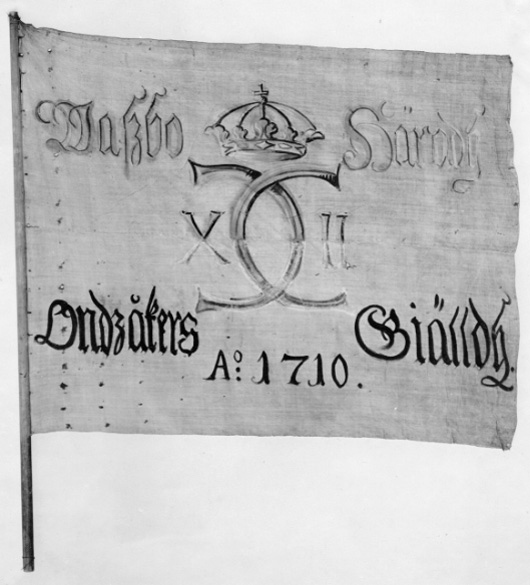 Waßbo Häradz
X II
Ondzåkers Giälldz.
A:o 1710.